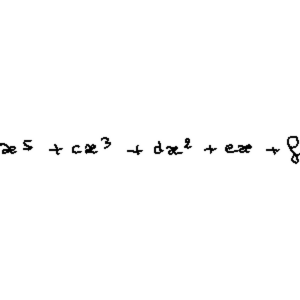 x⁵ + cx³ + dx² + ex + f